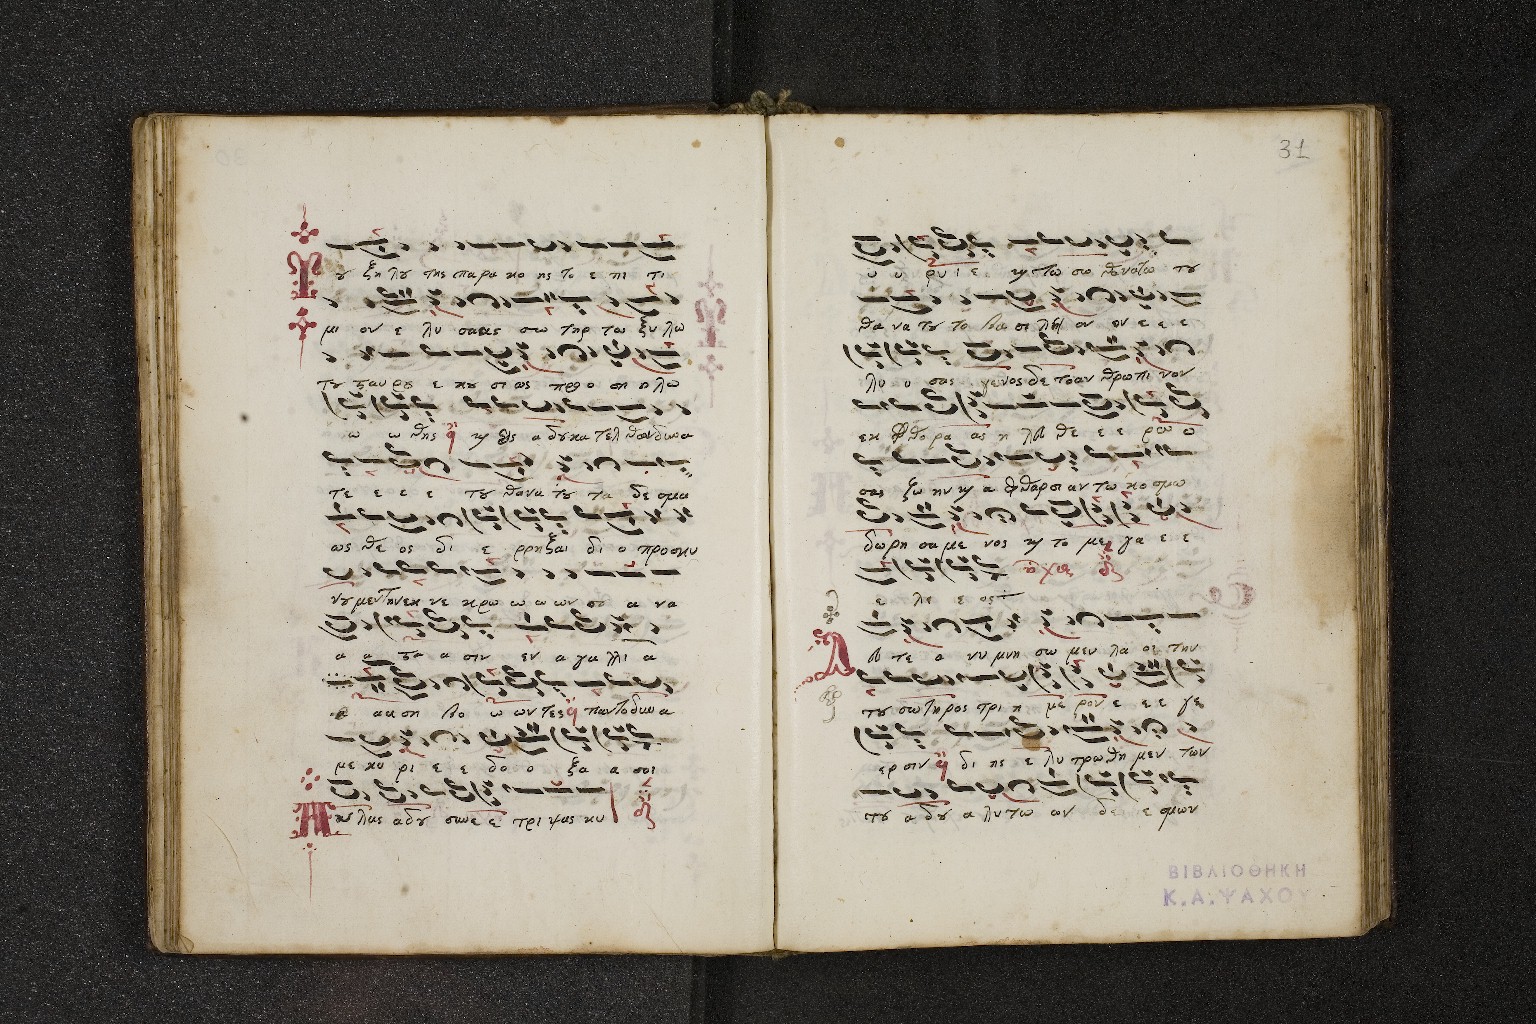 Του ξη λου της παρα κο ης το ε πι τι
μι ον ε λυ σαας σω τηρ τω ξυ λω
του σταυ ρου ε κου σι ως προ ση η λω
ω ω θης κ εις α δου κα τελ θων δυνα
τε ε ε ε του θανα του τα δε σμα
ως θε ος δι ε ρρηξαι δι ο προσκυ
νου μεν την εκ νε κρω ω ω ων σου α να
α α στα α σιν εν α γα λλι α
α α ση βο ω ων τες παντοδυνα
με κυ ρι ε ε δο ο ξα α σοι
Πυ λας αδου συνε ε τρι ψας κυ
31
υ υ ρι ι ε κ τω σω θανατω του
θα να του το βα σι λει ον ον ε ε ε
λυ υ σας γενος δε το αν θρωπι νον
εκ φθο ρα ας η λευ θε ε ε ρω ω
σας ζω ην κ α φθαρσι αν τω κο σμω
δωρη σα με νος κ το με γα ε ε
ε λε ε ος
Δ ευ τε α νυ μνη σω μεν λα οι την
του σωτηρος τρι η με ρον ε ε ε γε
ερ σιν δι ης ε λυ τρω θη μεν των
του α δου α λυ τω ων δε ε σμων
ΒΙΒΛΙΟΘΗΚΗ
Κ.Α.ΨΑΧΟΥ